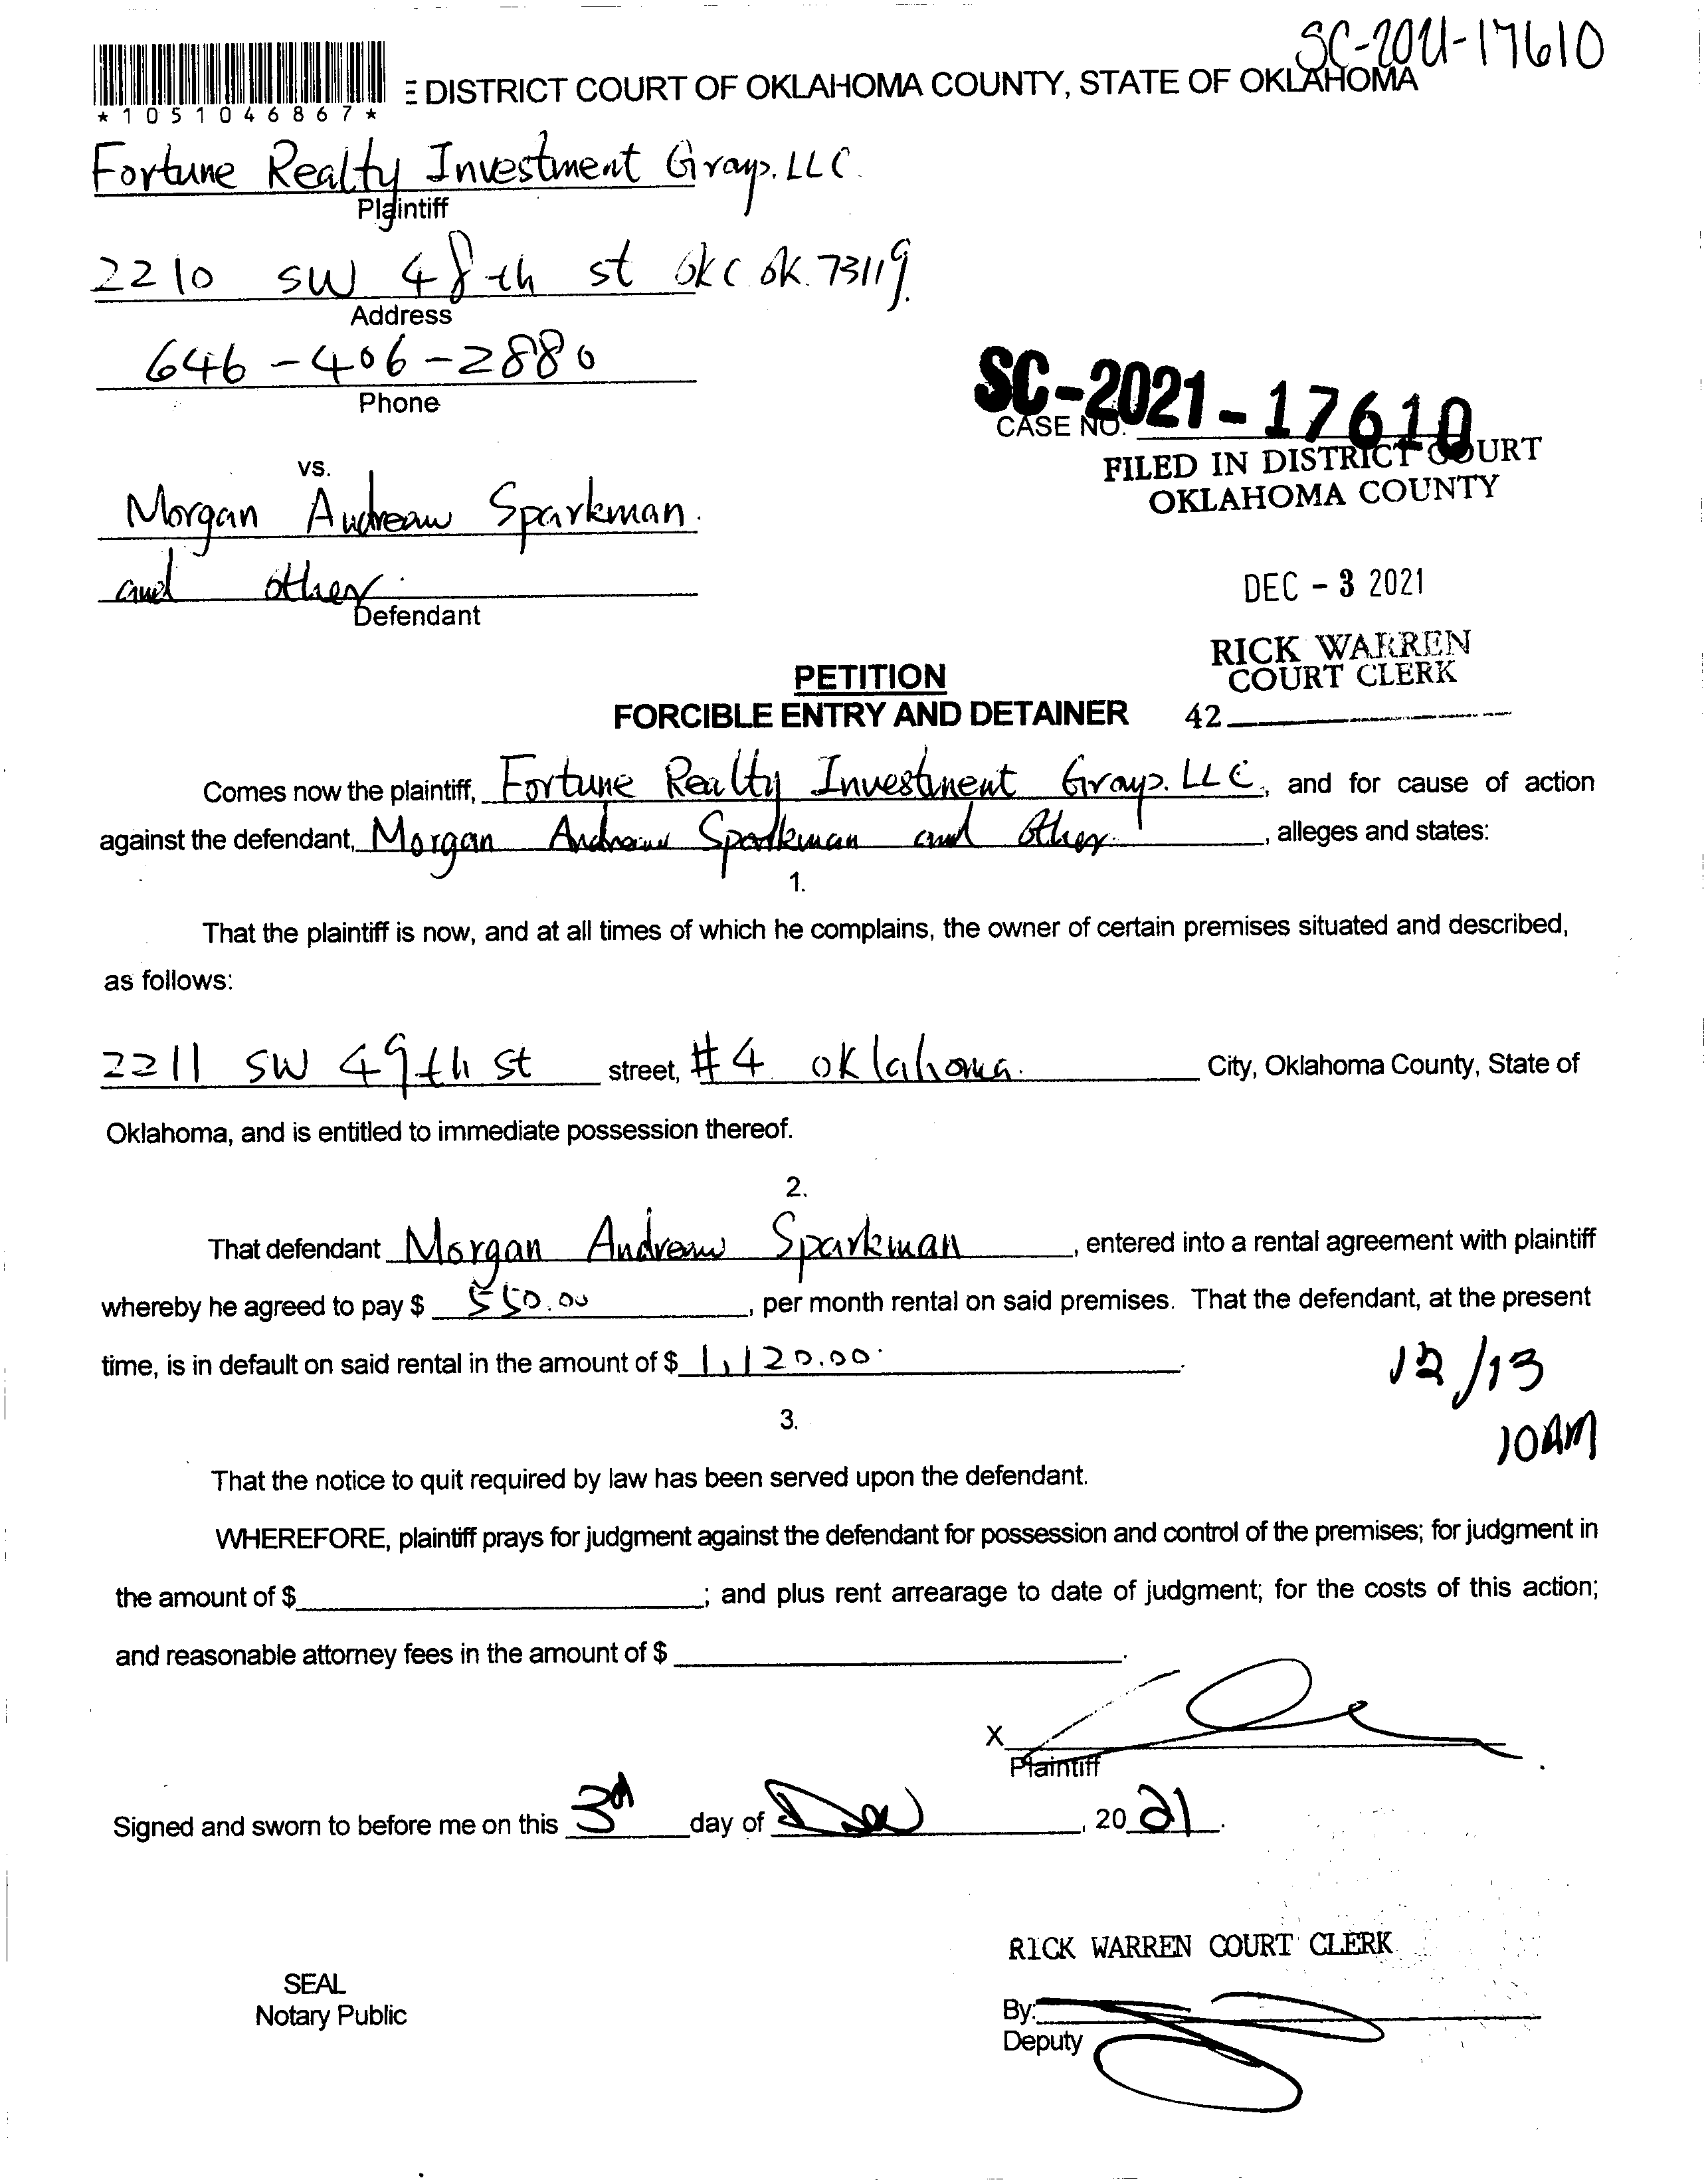 SC-2021-17610
*1051046867*
E DISTRICT COURT OF OKLAHOMA COUNTY, STATE OF OKLAHOMA
Fortune Realty Investment Group. LLC.
Plaintiff
2210 SW 48th st OKC OK. 73119.
Address
646-406-2880
Phone
SC-2021-17610
CASE NO.
FILED IN DISTRICT COURT
OKLAHOMA COUNTY
vs.
Morgan Andreaw Sparkman.
and other.
Defendant
DEC - 3 2021
RICK WARREN
COURT CLERK
42
PETITION
FORCIBLE ENTRY AND DETAINER
Comes now the plaintiff, Fortune Realty Investment Group. LLC, and for cause of action
against the defendant, Morgan Andreaw Sparkman and other. , alleges and states:
1.
That the plaintiff is now, and at all times of which he complains, the owner of certain premises situated and described,
as follows:
2211 SW 49th st street, #4 oklahoma. City, Oklahoma County, State of
Oklahoma, and is entitled to immediate possession thereof.
2.
That defendant Morgan Andreaw Sparkman , entered into a rental agreement with plaintiff
whereby he agreed to pay $ 550.00 , per month rental on said premises. That the defendant, at the present
time, is in default on said rental in the amount of $ 1,120.00 .
12/13
10AM
3.
That the notice to quit required by law has been served upon the defendant.
WHEREFORE, plaintiff prays for judgment against the defendant for possession and control of the premises; for judgment in
the amount of $ ; and plus rent arrearage to date of judgment; for the costs of this action;
and reasonable attorney fees in the amount of $ .
X
Plaintiff
Signed and sworn to before me on this 3rd day of Dec , 20 21 .
RICK WARREN COURT CLERK
SEAL
Notary Public
By:
Deputy